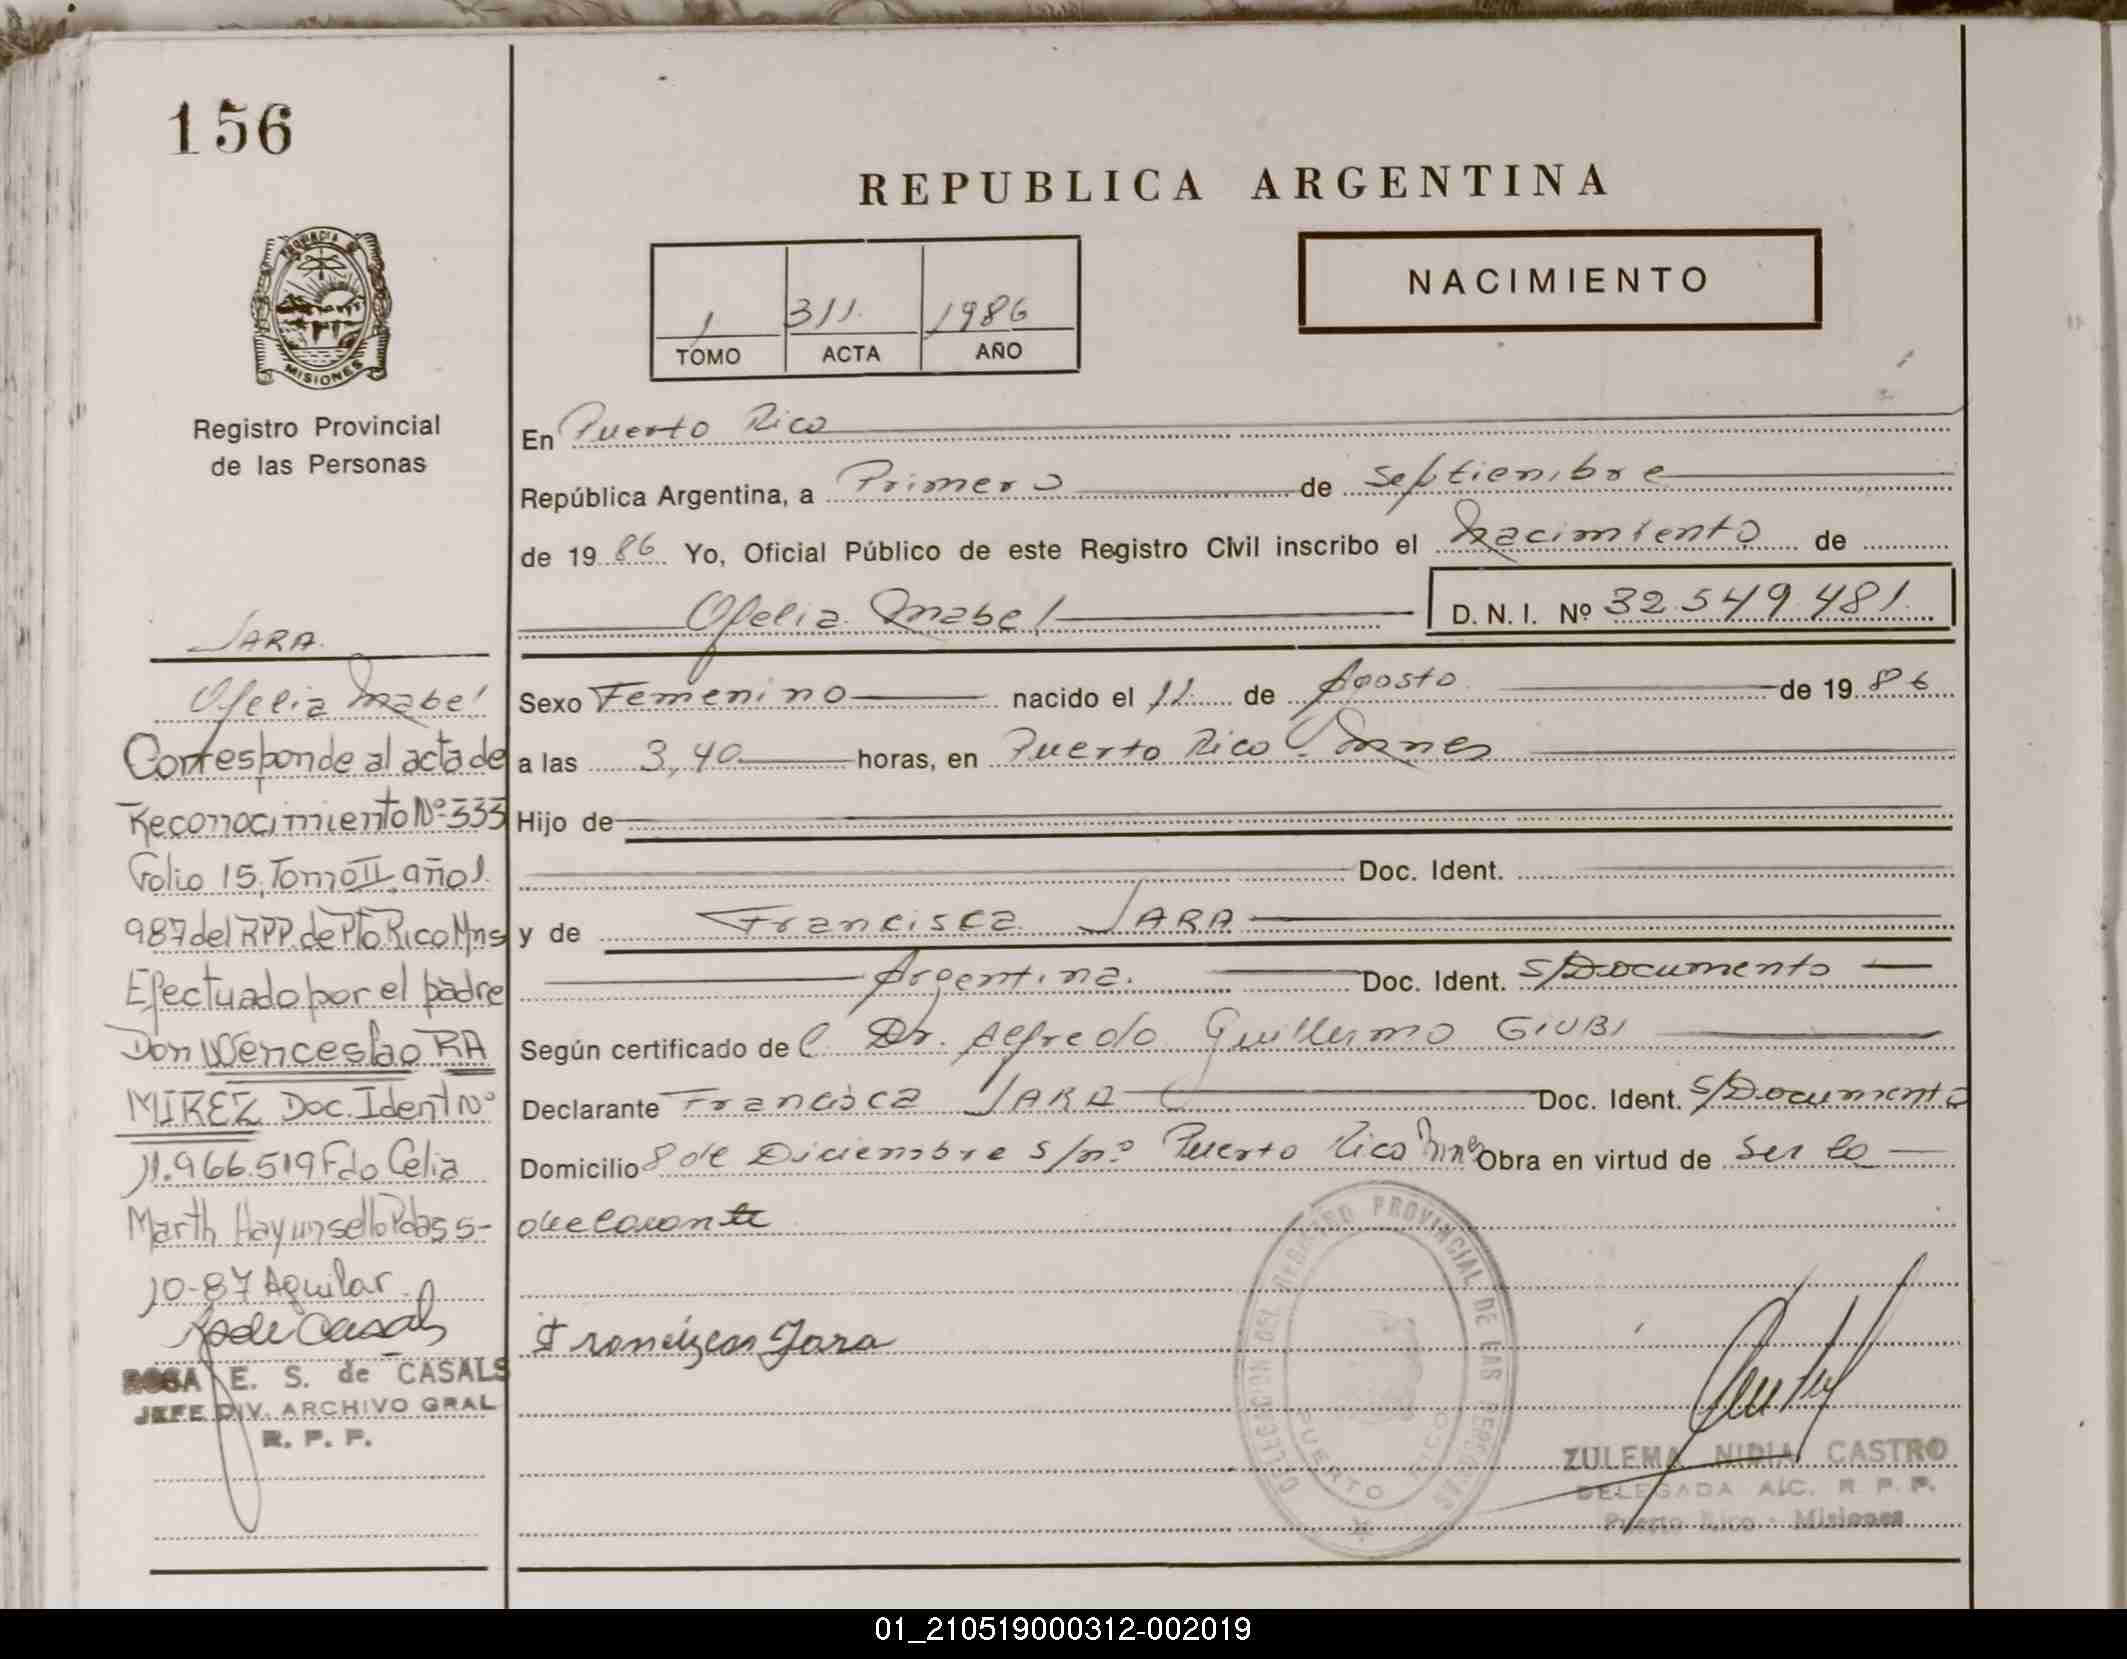 156
REPUBLICA ARGENTINA
NACIMIENTO
1 311. 1986
TOMO ACTA AÑO
PROVINCIA DE
MISIONES
Registro Provincial
de las Personas
En Puerto Rico
República Argentina, a Primero de Septiembre
de 19 86 Yo, Oficial Público de este Registro Civil inscribo el Nacimiento de
Ofelia Mabel D. N. I. Nº 32.549.481.
Sexo Femenino nacido el 11 de Agosto de 19 86
a las 3,40 horas, en Puerto Rico Mnes
Hijo de
Doc. Ident.
y de Francisca JARA
Argentina. Doc. Ident. S/Documento
Según certificado de l Dr. Alfredo Guillermo GIUBI
Declarante Francisca JARA Doc. Ident. S/Documento
Domicilio 8 de Diciembre s/nº Puerto Rico Mnes Obra en virtud de ser la
declarante
Francisca Jara
DELEGACION DEL REGISTRO PROVINCIAL DE LAS PERSONAS
PUERTO RICO
ZULEMA NIDIA CASTRO
DELEGADA A/C. R. P. P.
Puerto Rico - Misiones
JARA.
Ofelia Mabel
Corresponde al acta de
Reconocimiento Nº 333
Folio 15, Tomo II, año 1.
987 del RPP. de Pto Rico Mns
Efectuado por el padre
Don Wenceslao RA
MIREZ Doc. Ident Nº
11.966.519 Fdo Celia
Marth Hay un sello Pdas 5-
10-87 Aguilar
ROSA E. S. de CASALS
JEFE DIV. ARCHIVO GRAL
R. P. P.
01_210519000312-002019